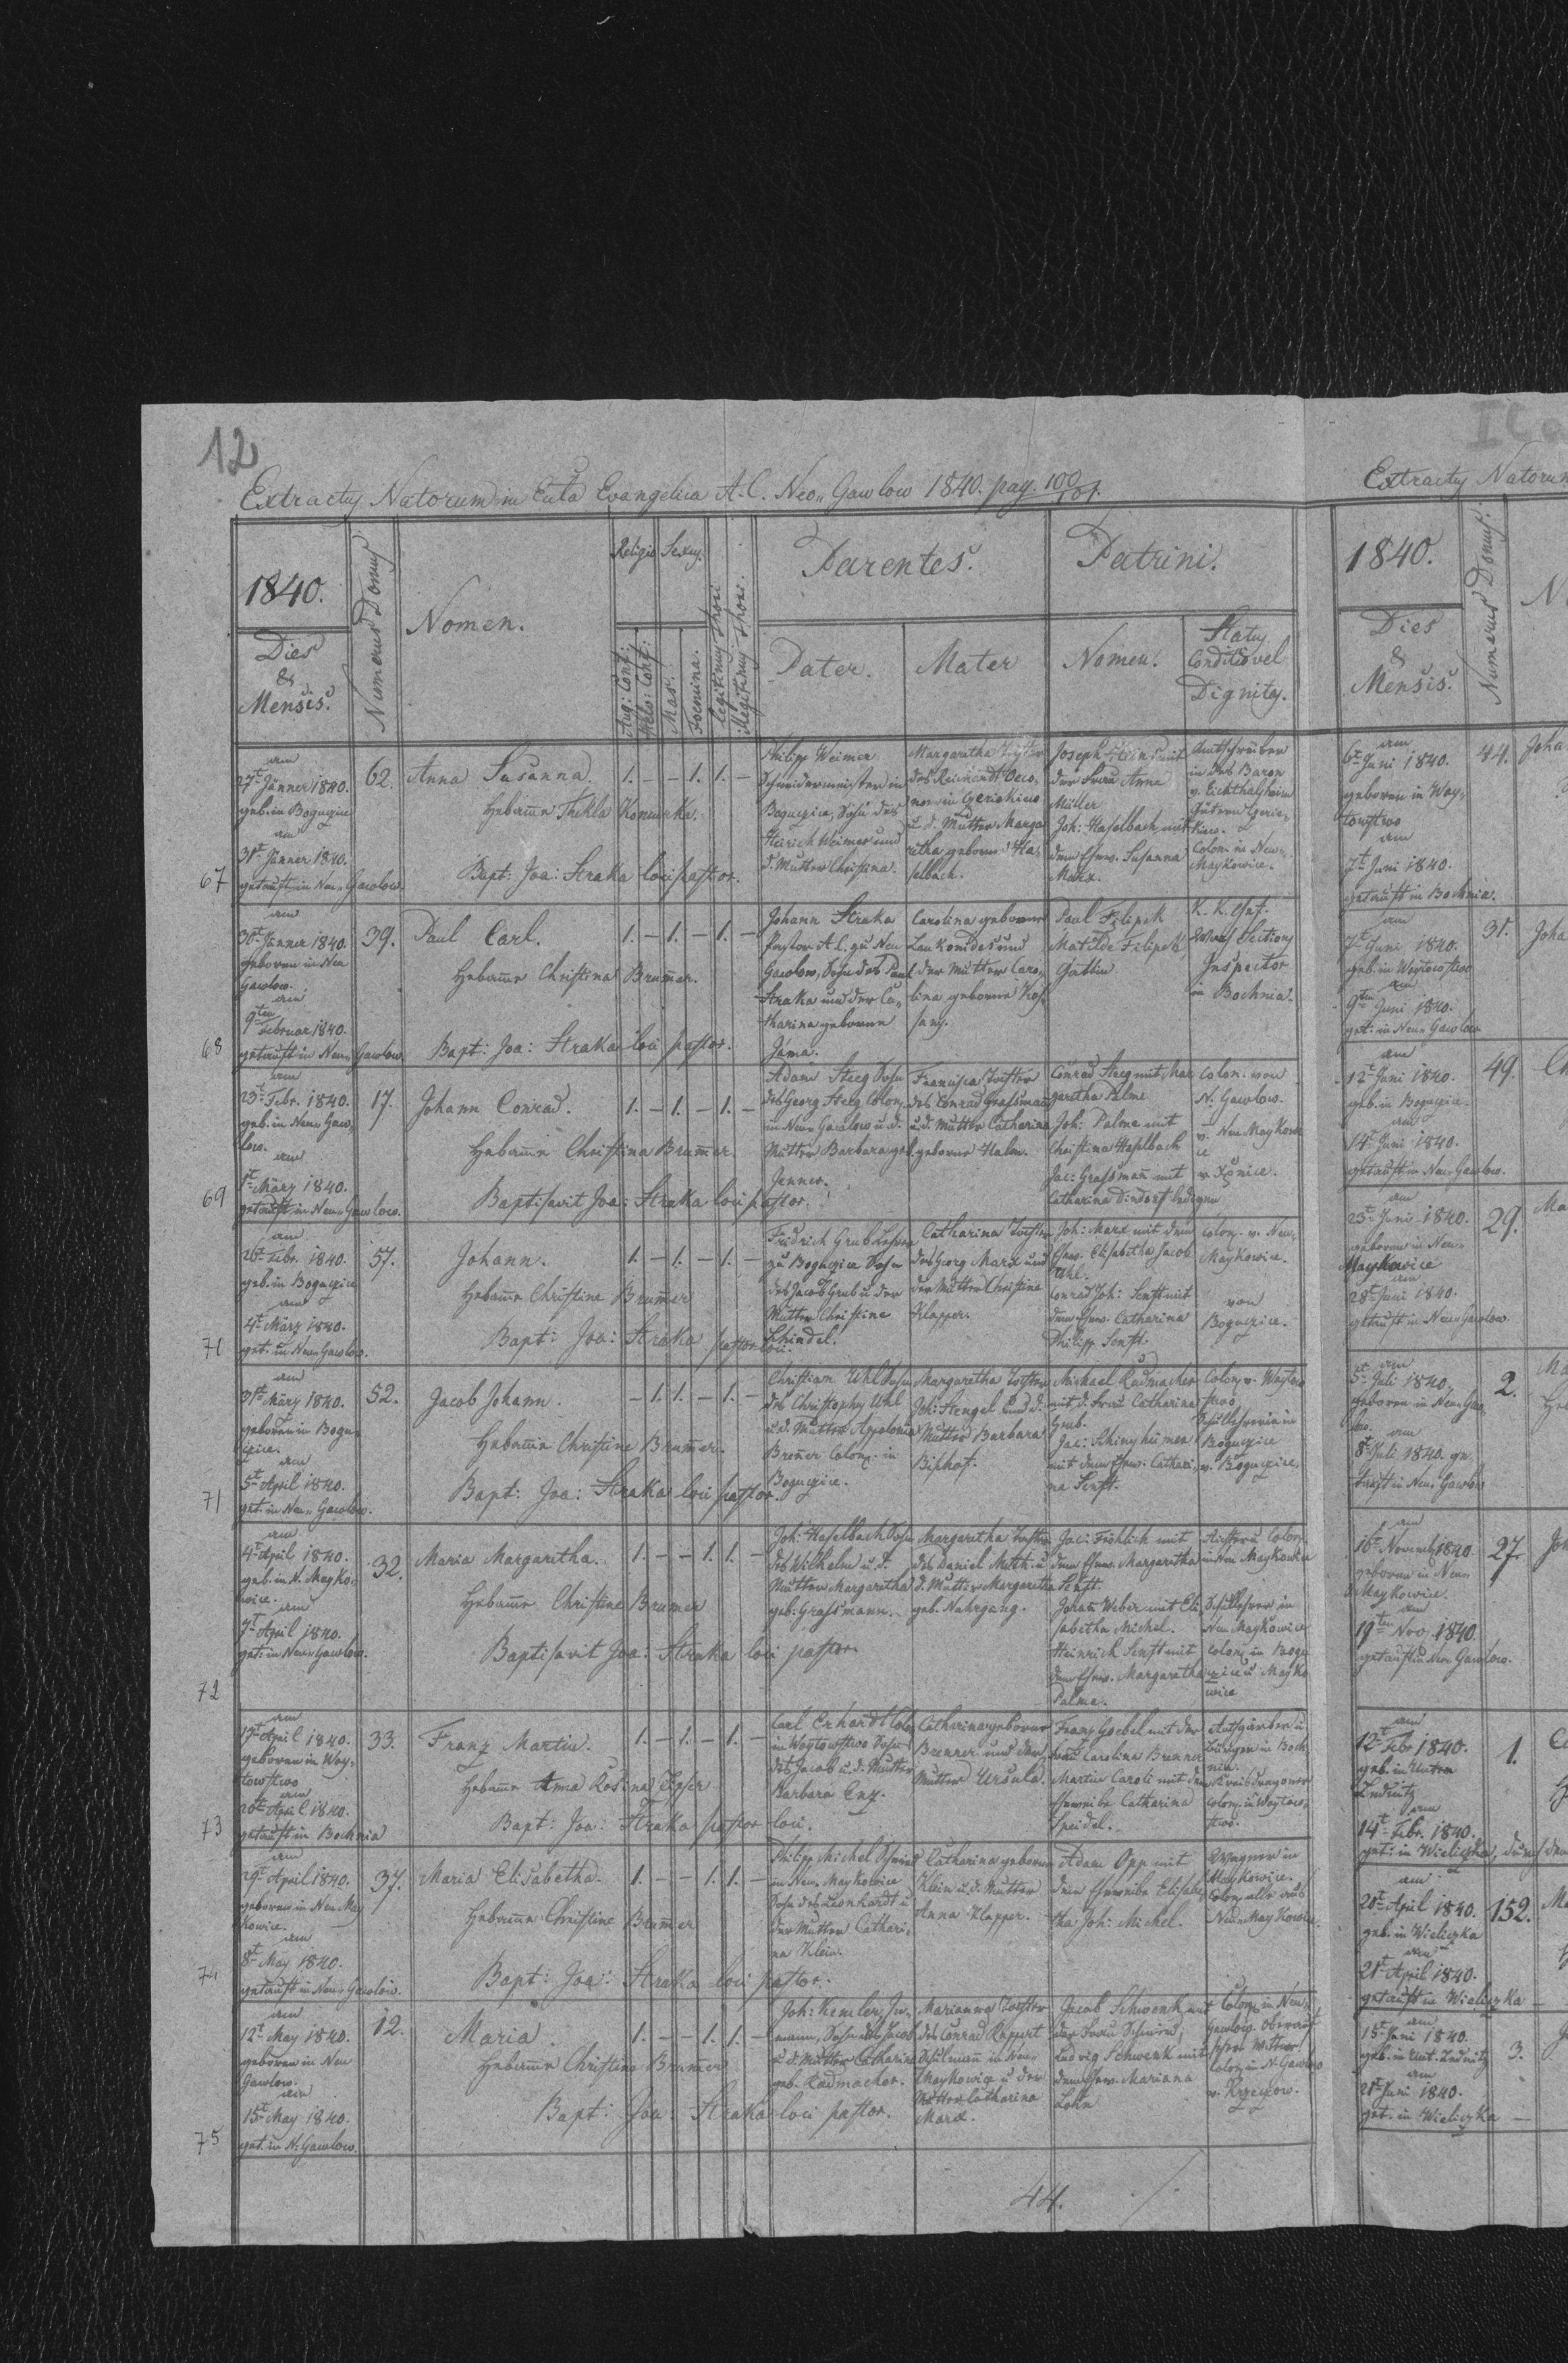 12
Extractus Natorum in Ecta Evangelica A. C. Neo„ Gawlow 1840. pag. 100/101.
1840.
Dies
&
Mensis.
Numerus Domus
Nomen.
Religio
Sexus.
Aug: Conf:
Helv: Conf:
Mas.
Foemina.
Legitimi Thori
Illegitimi Thori.
Parentes.
Pater.
Mater
Patrini.
Nomen.
Status
Conditio vel
Dignitas.
67
am
27t Jänner 1840.
geb. in Bogucice
am
31t Jänner 1840.
getauft in Neu„ Gawlow.
62.
Anna Susanna.
Hebamme Thekla
Bapt: Joa: Straka loci pastor.
1. – – 1. 1. –
Philipp Weimer
Schneidermeister in
Bogucice, Sohn des
Heinrich Weimer und
d. Mutter Christina.
Margaretha Tochter
des
in
u d. Mutter Marga
retha geborne Ha„
selbach.
Joseph mit
der Frau Anna
Müller
Joh: Haselbach mit
dem Ehew. Susanna
Marx.
Amtschreiber
in des Baron
v. Eichthalschen
Gütern
Colon. in Neu„
Maykowice.
68
am
30t Jänner 1840.
geboren in Neu
Gawlow.
am
9ten Februar 1840.
getauft in Neu„ Gawlow.
39.
Paul Carl.
Hebamme Christina Brumer.
Bapt: Joa: Straka loci pastor.
1. – 1. – 1. –
Johann Straka
Pastor A. C. zu Neu
Gawlow, Sohn des Paul
Straka und der Ca„
tharina geborne
Jáma.
Carolina geborne
und
der Mutter Caro„
lina geborne
Paul Filipek
Matilde Filipek,
Gattin
K. K.
Sections
Inspector
in Bochnia.
69
am
23t Febr. 1840.
geb. in Neu„ Gaw„
low.
am
1t März 1840.
getauft in Neu„ Gawlow.
17.
Johann Conrad.
Hebamme Christina Brumer.
Baptisavit Joa: Straka loci pastor.
1. – 1. – 1. –
Adam Steeg Sohn
des Georg Steeg Colon.
in Neu„ Gawlow u. d.
Mutter Barbara geb.
Jenner.
Francisca Tochter
des Conrad Grassmann
u. d. Mutter Catharina
geborne Halm.
Conrad Steeg mit Mar
garetha Palme
Joh: Palme mit
Christina Haselbach
Jac: Grassmann mit
Catharina Dindorf
Colon. von
N. Gawlow.
v. Neu Maykow
ice
v.
71
am
26t Febr. 1840.
geb. in Bogucice
am
4t März 1840.
get. in Neu„ Gawlow.
57.
Johann.
Hebamme Christine Brumer
Bapt: Joa: Straka pastor loci.
1. – 1. – 1. –
Fridrich Grub Lehrer
zu Bogucice Sohn
des Jacob Grub u. der
Mutter Christine
Schindel.
Catharina Tochter
des Georg Marx und
der Mutter Christine
Klapper.
Joh: Marx mit dem
Ehew. Elisabetha Jacob
Uhl.
Conrad Joh: Senft mit
dem Ehew. Catharina
Philipp Senft.
Colon. v. Neu„
Maykowice.
von
Bogucice.
71
am
31t März 1840.
geboren in Bogu„
cice.
am
5t April 1840.
get. in Neu„ Gawlow.
52.
Jacob Johann.
Hebamme Christine Brumer.
Bapt: Joa: Straka loci pastor.
– 1. 1. – 1. –
Christian Uhl Sohn
des Christoph Uhl
u d. Mutter Appolonia
Breñer Colon. in
Bogucice.
Margaretha Tochter
Joh: Stengel und d.
Mutter Barbara
Bischof.
Michael Radmacher
mit d. Frau Catharina
Grub.
Jac:
mit dem Ehew. Cathari„
na Senft.
Colon. v. Woytow
stwo
Schullehrerin in
Bogucice
v. Bogucice.
72
am
4t April 1840.
geb. in N. Mayko„
wice.
am
7t April 1840.
get. in Neu„ Gawlow.
32.
Maria Margaretha.
Hebamme Christine Brumer
Baptisavit Joa: Straka loci pastor
1. – – 1. 1. –
Joh: Haselbach Sohn
des Wilhelm u. d.
Mutter Margaretha
geb: Grassmann.
Margaretha Tochter
des Daniel Muth. u
d. Mutter Margaretha
geb. Nahrgang.
Jac: Fröhlich mit
dem Ehew. Margaretha
Senft.
Weber mit Eli
sabetha Michel.
Heinrich Senft mit
dem Ehew. Margaretha
Palme.
Colon.
in Neu Maykowice
Schullehrer in
Neu Maykowice
Colon. in Bogu
cice u Mayko
wice
73
am
17t April 1840.
geboren in Woy„
towstwo
am
20t April 1840.
getauft in Bochnia
33.
Franz Martin.
Hebamme Anna Rosina
Bapt: Joa: Straka pastor loci.
1. – 1. – 1. –
Carl Erhardt Colon.
in Woytowstwo Sohn
des Jacob u. d. Mutter
Barbara Enz.
Catharina geborne
Brenner und der
Mutter Ursula.
Franz Goebel mit der
Frau Carolina Brenner
Martin Caroli mit dem
Eheweibe Catharina
Speidel.
u
Bürger in Boch
nia.
Colon. in Woytow„
stwo.
74
am
29t April 1840.
geboren in Neu May
kowice.
am
8t May 1840.
getauft in Neu„ Gawlow.
37.
Maria Elisabetha.
Hebamme Christine Brumer
Bapt: Joa: Straka loci pastor.
1. – – 1. 1. –
Philipp Michel Schmied
in Neu„ Maykowice
Sohn des Leonhardt u
der Mutter Cathari„
na Klein.
Catharina geborne
Klein u. d. Mutter
Anna Klapper.
Adam Opp mit
dem Eheweibe Elisabe„
tha Joh: Michel.
Wagner in
Maykowice.
Colon. alle aus
Neu„ Maykowice.
75
am
12t May 1840.
geboren in Neu
Gawlow.
am
15t May 1840.
get. in N. Gawlow.
12.
Maria.
Hebamme Christine Brumer
Bapt: Joa: Straka loci pastor.
1. – – 1. 1. –
Joh: Kemler, In„
mann, Sohn des Jacob
u d. Mutter Catharina
geb. Radmacher.
Marianna Tochter
des Conrad Ruppert
in Neu„
Maykowice u der
Mutter Catharina
Marx.
Jacob Schwenk mit
der Frau
Ludwig Schwenk mit
dem Ehew. Mariana
Lohn
Colon. in Neu„
Gawlow.
Colon. in N. Gawlow
v. Krzeczow.
44.
Extractus Natorum
1840.
Dies
&
Mensis.
Numerus Domus.
am
6t Juni 1840.
geboren in Woy„
towstwo
am
7t Juni 1840.
getauft in Bochnia.
44.
Joha
am
7t Juni 1840.
geb. in Woytowstwo
am
9ten Juni 1840.
get: in Neu„ Gawlow
31.
Joha
am
12t Juni 1840.
geb. in Bogucice.
am
14t Juni 1840.
getauft in Neu„ Gawlow.
49.
am
23t Juni 1840.
geboren in Neu„
Maykowice
am
28t Juni 1840.
getauft in Neu„ Gawlow.
29.
Ma
am
5t Juli 1840.
geboren in Neu„ Gaw
low.
am
8t Juli 1840. ge„
tauft in Neu„ Gawlow
2.
Ma
am
16t Novemb 1840.
geboren in Neu„
Maykowice.
am
19ten Nov. 1840.
getauft in Neu„ Gawlow.
27.
Joh
am
12t Febr 1840.
geb. in Unter
am
14t Febr. 1840.
get: in Wieliczka, durch den
1.
am
20t April 1840.
geb. in Wieliczka
am
21t April 1840.
getauft in Wieliczka
152.
Ma
am
15t Juni 1840.
geb. in Unt.
am
21t Juni 1840.
get. in Wieliczka
3.